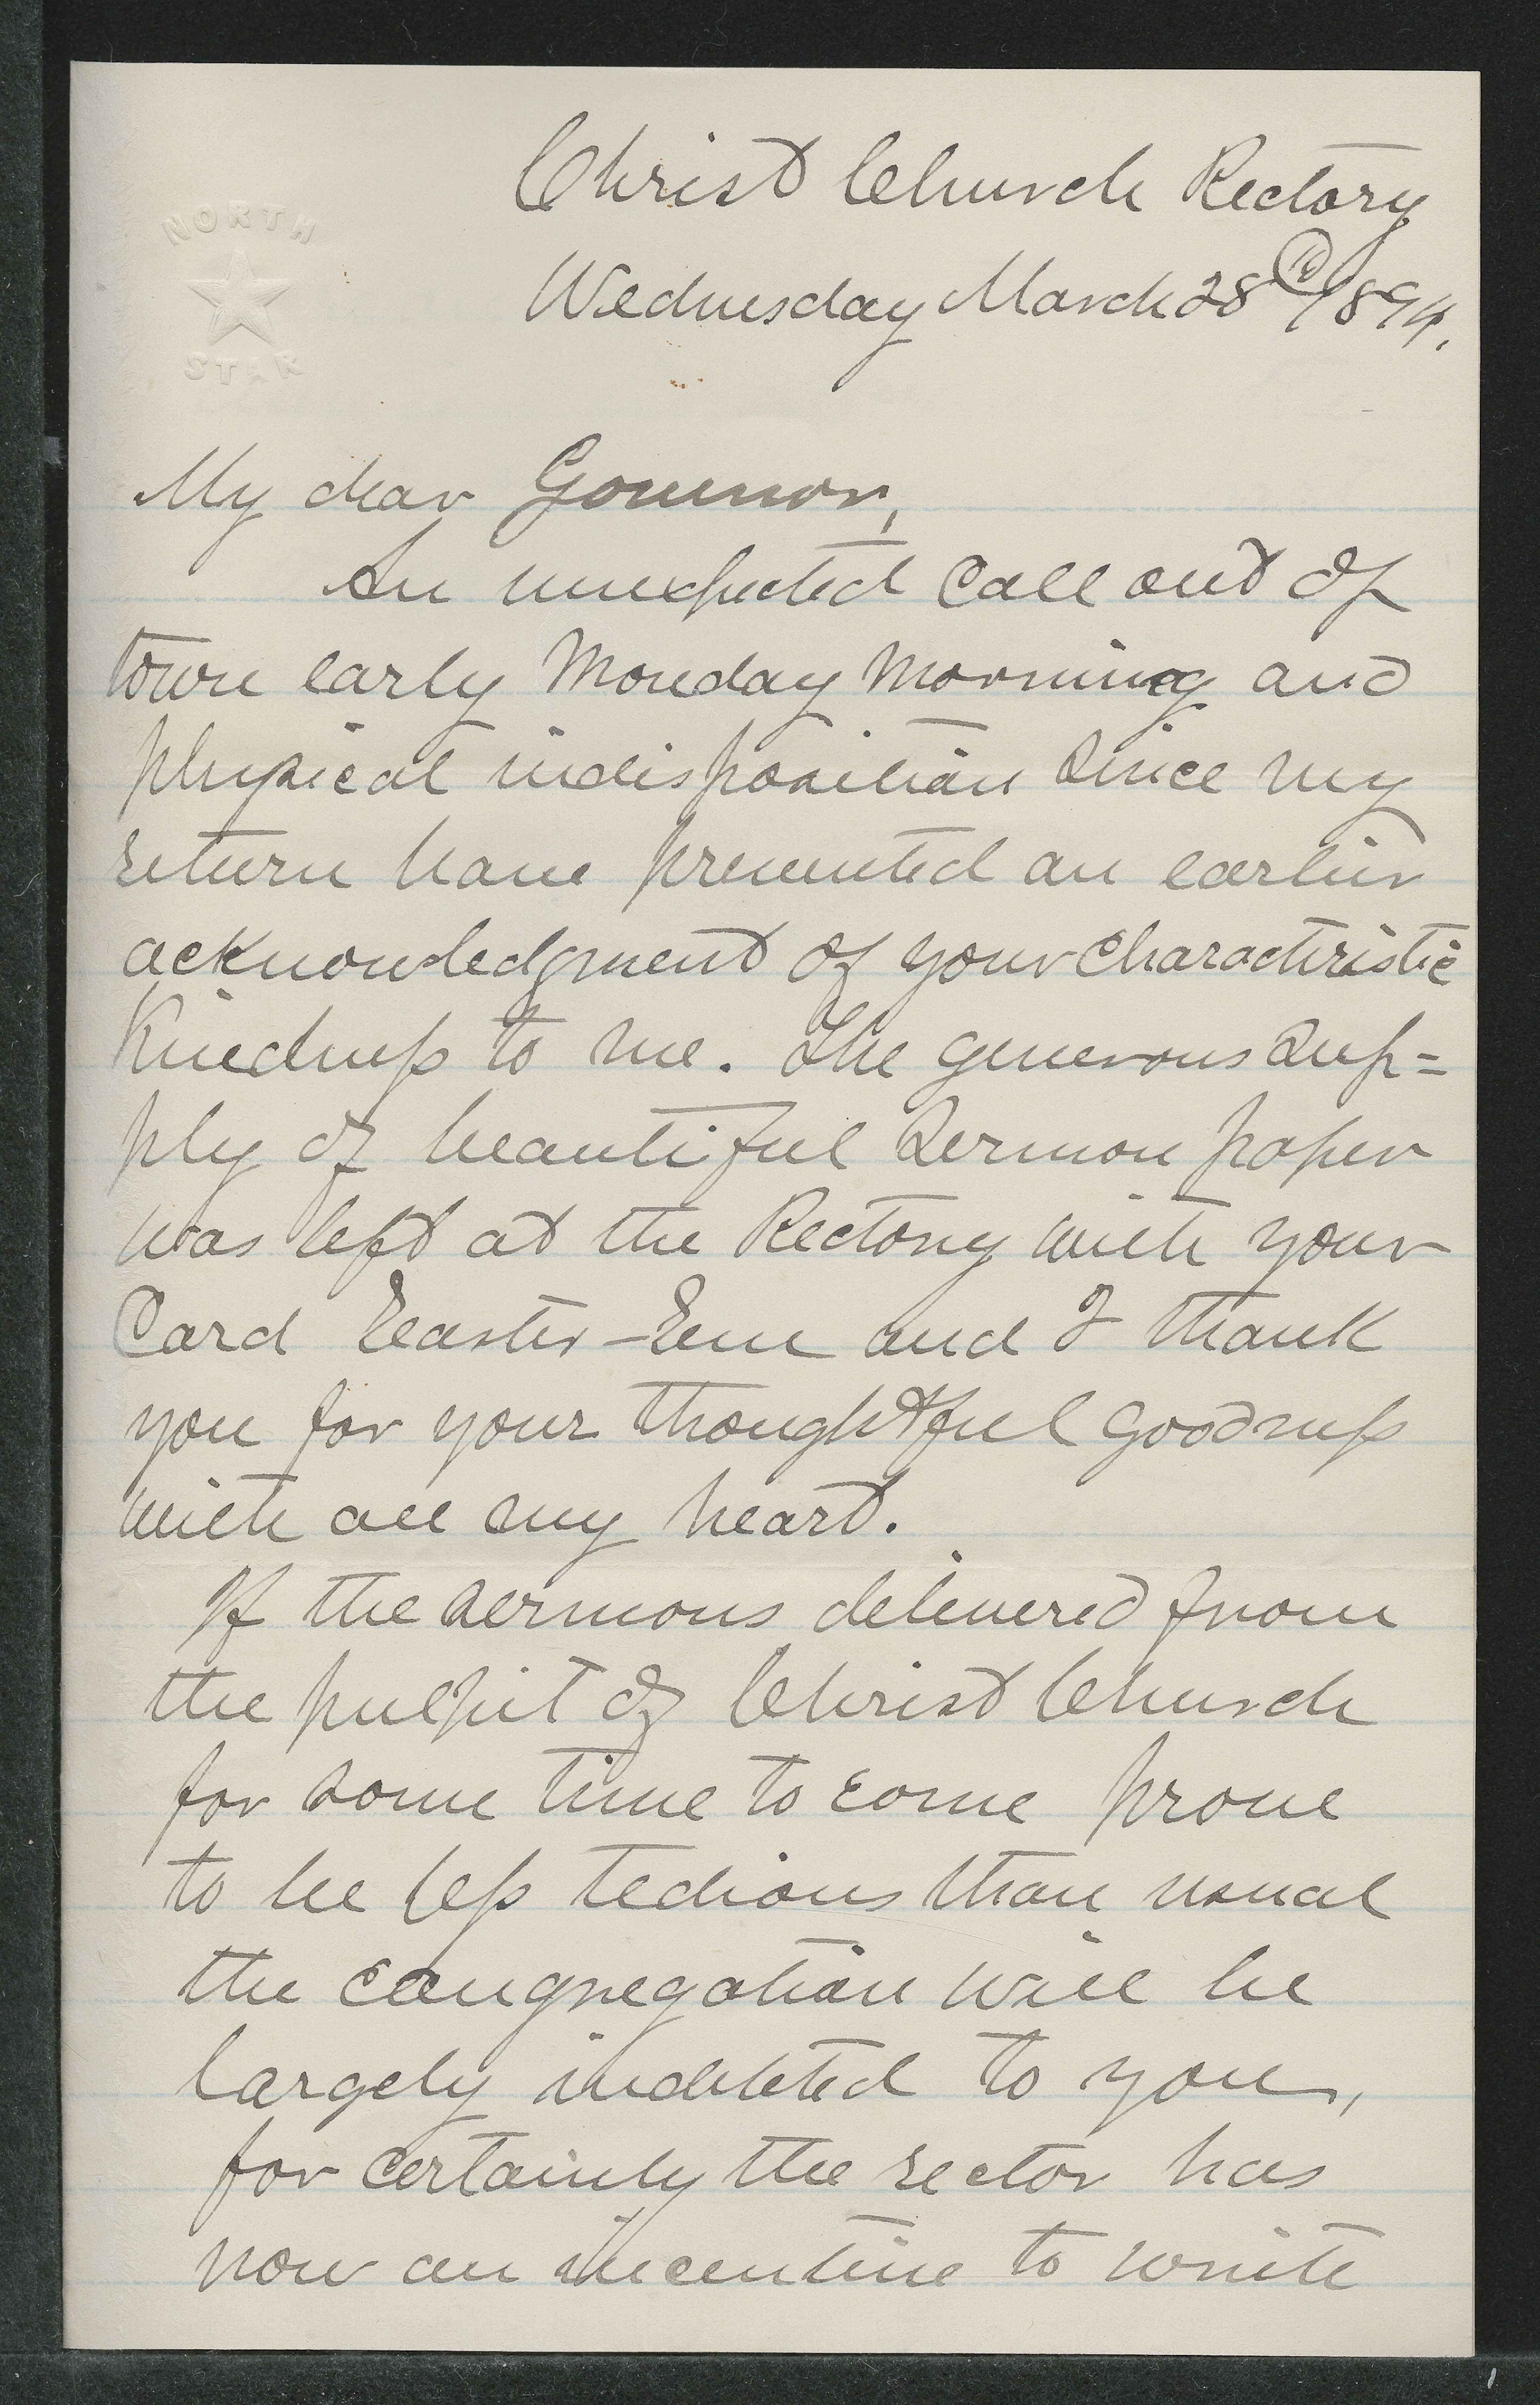 NORTH
STAR
Christ Church Rectory
Wednesday March 28th 1894.
My dear Governor,
An unexpected call out of
town early Monday Morning and
physical indisposition since my
return have prevented an earlier
acknowledgment of your characteristic
Kindness to me. The generous sup=
ply of beautiful sermon paper
was left at the Rectory with your
Card Easter-Even and I thank
you for your thoughtful goodness
with all my heart.
If the sermons delivered from
the pulpit of Christ Church
for some time to come prove
to be less tedious than usual
the congregation will be
largely indebted to you,
for certainly the rector has
now an incentive to write